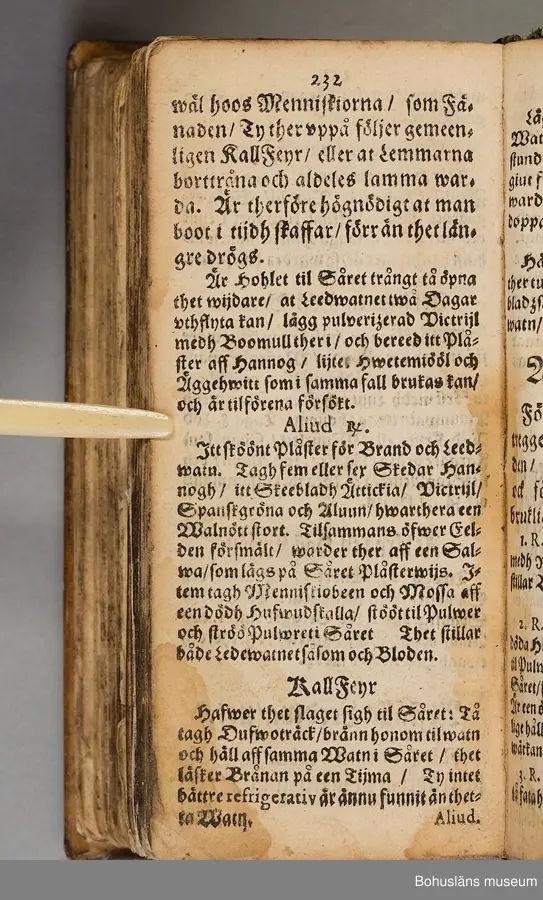 232
wäl hoos Menniskiorna / som Fä-
naden / Ty ther vppå följer gemeen-
ligen KallFeyr / eller at Lemmarna
borttråna och aldeles lamma war-
da. Är therföre högnödigt at man
boot i tijdh skaffar / förrän thet län-
gre drögs.
Är Hohlet til Såret trångt tå öpna
thet wijdare / at Leedwatnet twå Dagar
vthflyta kan / lägg pulverizerad Victrijl
medh Boomull ther i / och bereed itt Plå-
ster aff Hannog / lijtet Hwetemiööl och
Äggehwitt som i samma fall brukas kan /
och är tilförena försökt.
Aliud ℞.
Itt skôônt Plåster för Brand och Leed-
watn. Tagh fem eller sex Skedar Han-
nogh / itt Skeebladh Ättickia / Victrijl /
Spanskgröna och Aluun / hwarthera een
Walnött stort. Tilsammans öfwer Eel-
den försmält / warder ther aff een Sal-
wa / som lägs på Såret Plåsterwijs. I-
tem tagh Menniskiobeen och Mossa aff
een dödh Hufwudskalla / stööt til Pulwer
och ströö Pulwret i Såret Thet stillar
både Ledewatnet såsom och Bloden.
KallFeyr
Hafwer thet slaget sigh til Såret: Tå
tagh Dufwoträck / bränn honom til watn
och häll aff samma Watn i Såret / thet
läsker Brånan på een Tijma / Ty intet
bättre refrigerativ är ännu funnit än thet-
ta Watn.
Aliud.
Watt
stund
giut f
ward
doppa
ther tu
watn /
Fö
den /
och fö
1. R.
medh
stillar
2. R.
döda H
til Pulw
Såret /
3. R.
Bohusläns museum